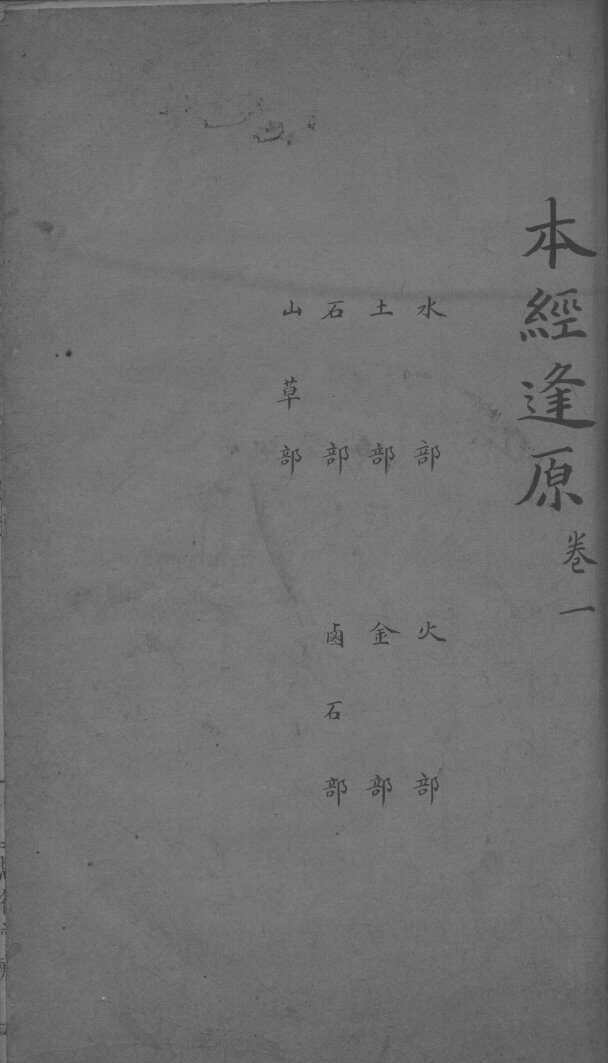 本經逢原卷一
水部 火部
土部 金部
石部 鹵石部
山草部